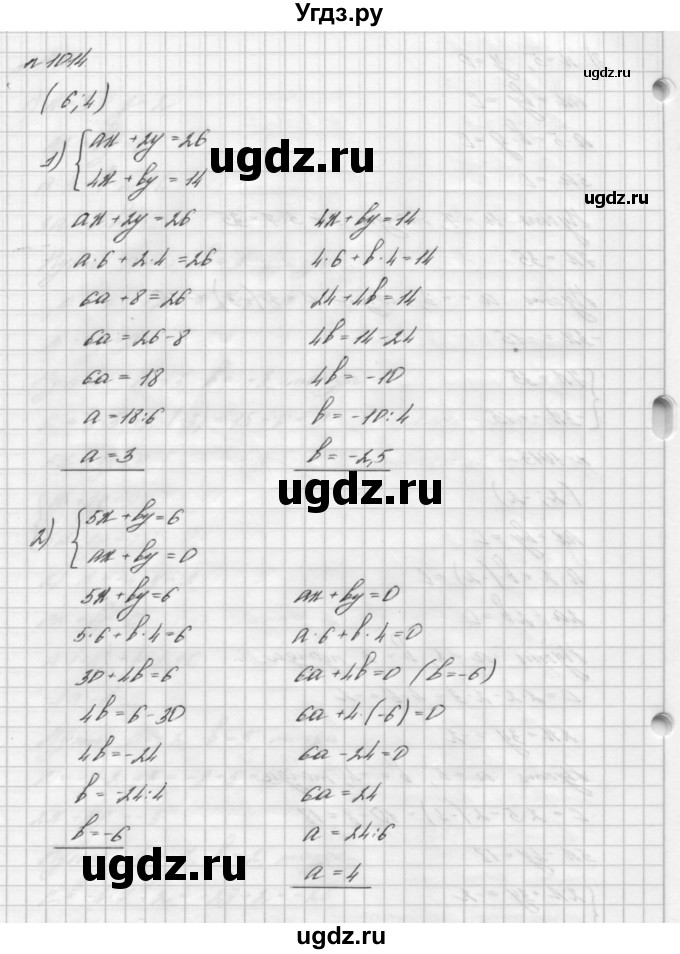 Угдз.ру
n 1014
ugdz.ru
(6;4)
1) { ax + 2y = 26
4x + by = 14
ugdz.ru
ax + 2y = 26
a·6 + 2·4 = 26
6a + 8 = 26
6a = 26 - 8
6a = 18
a = 18:6
a = 3
4x + by = 14
4·6 + b·4 = 14
24 + 4b = 14
4b = 14 - 24
4b = -10
b = -10:4
b = -2,5
ugdz.ru
2) { 5x + by = 6
ax + by = 0
5x + by = 6
5·6 + b·4 = 6
30 + 4b = 6
4b = 6 - 30
4b = -24
b = -24:4
b = -6
ax + by = 0
a·6 + b·4 = 0
6a + 4b = 0 (b = -6)
6a + 4·(-6) = 0
6a - 24 = 0
6a = 24
a = 24:6
a = 4
ugdz.ru
ugdz.ru
ugdz.ru